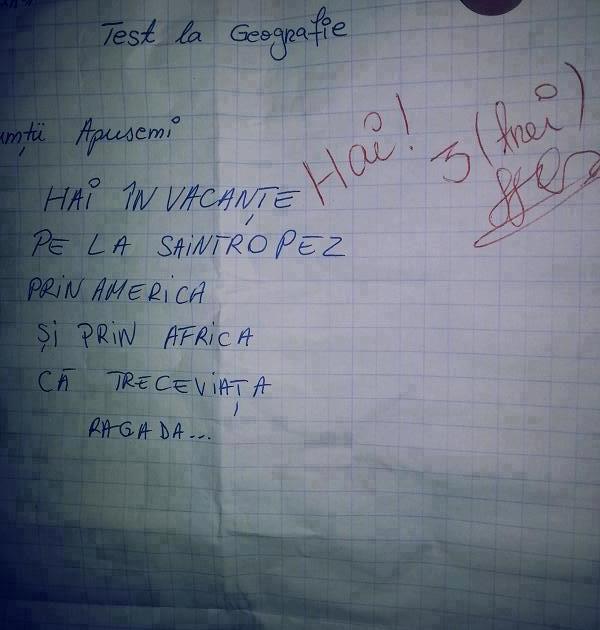 Test la Geografie
Apusemi
HAI ÎN VACANȚE
PE LA SAINTROPEZ
PRIN AMERICA
ȘI PRIN AFRICA
CĂ TRECEVIAȚA
RAGADA...
Hai!
3 (trei)